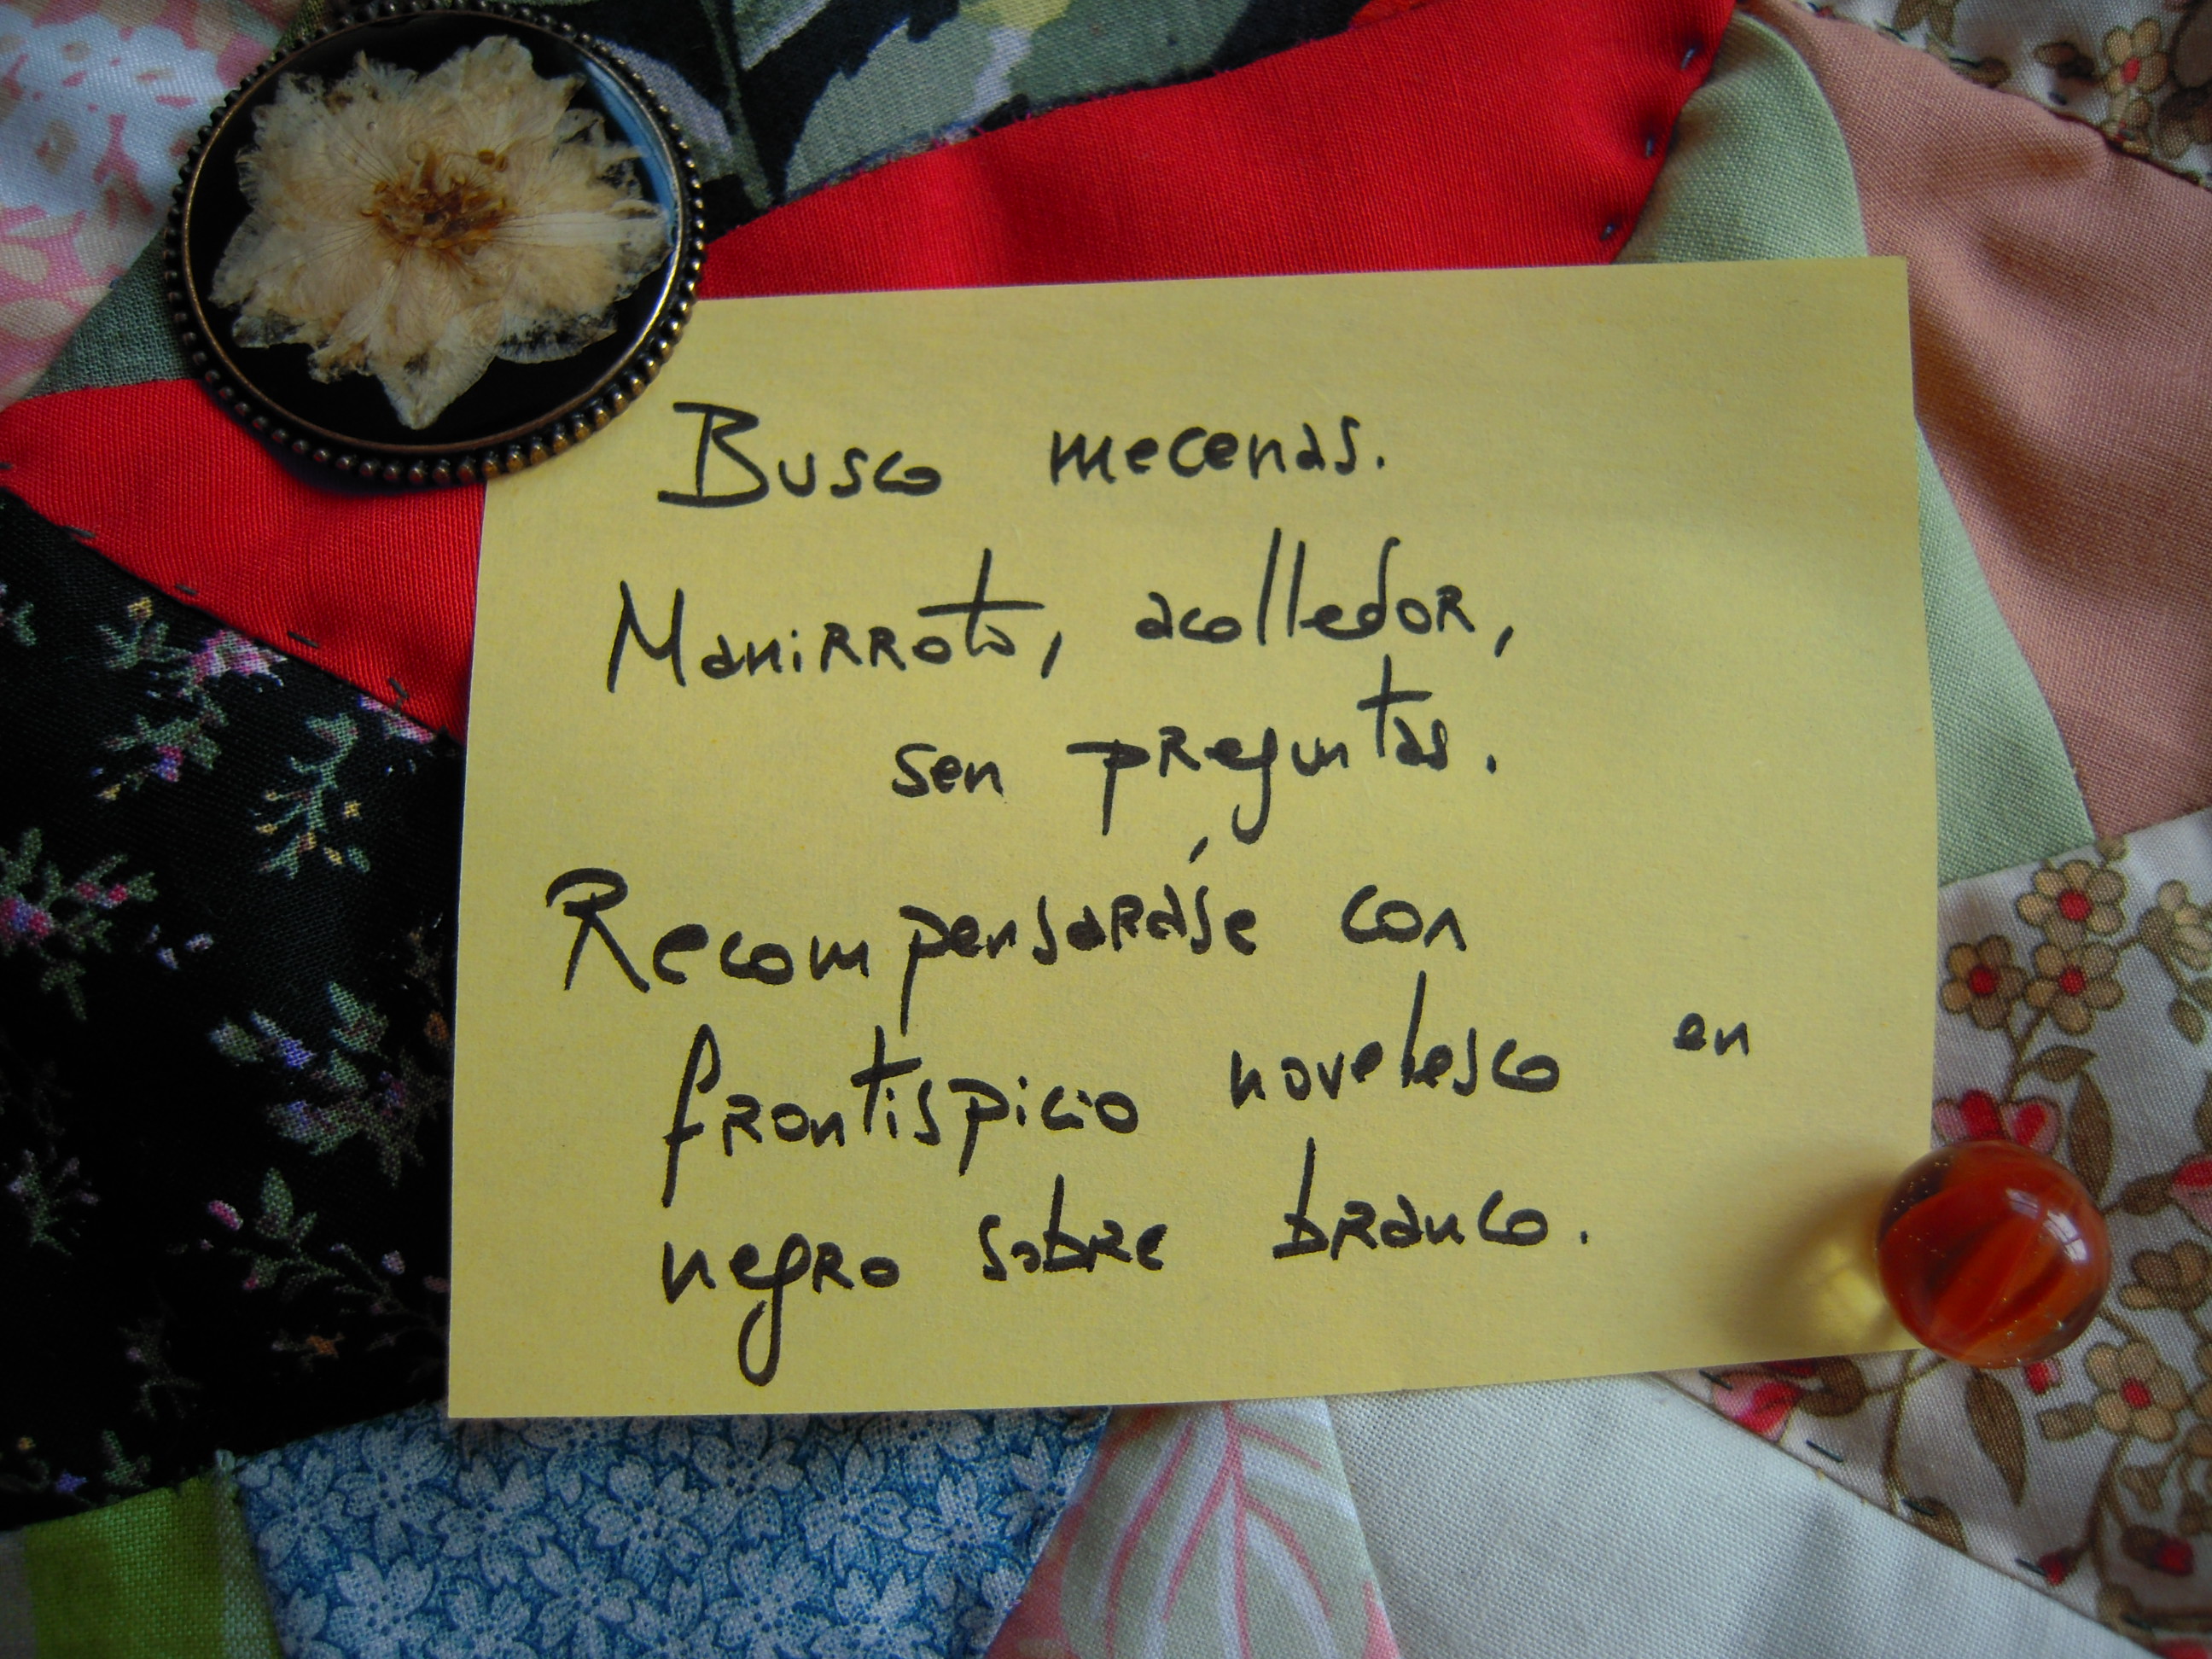 Busco mecenas.
Manirroto, acolledor,
sen preguntas.
Recompensarase con
frontispicio novelesco en
negro sobre branco.